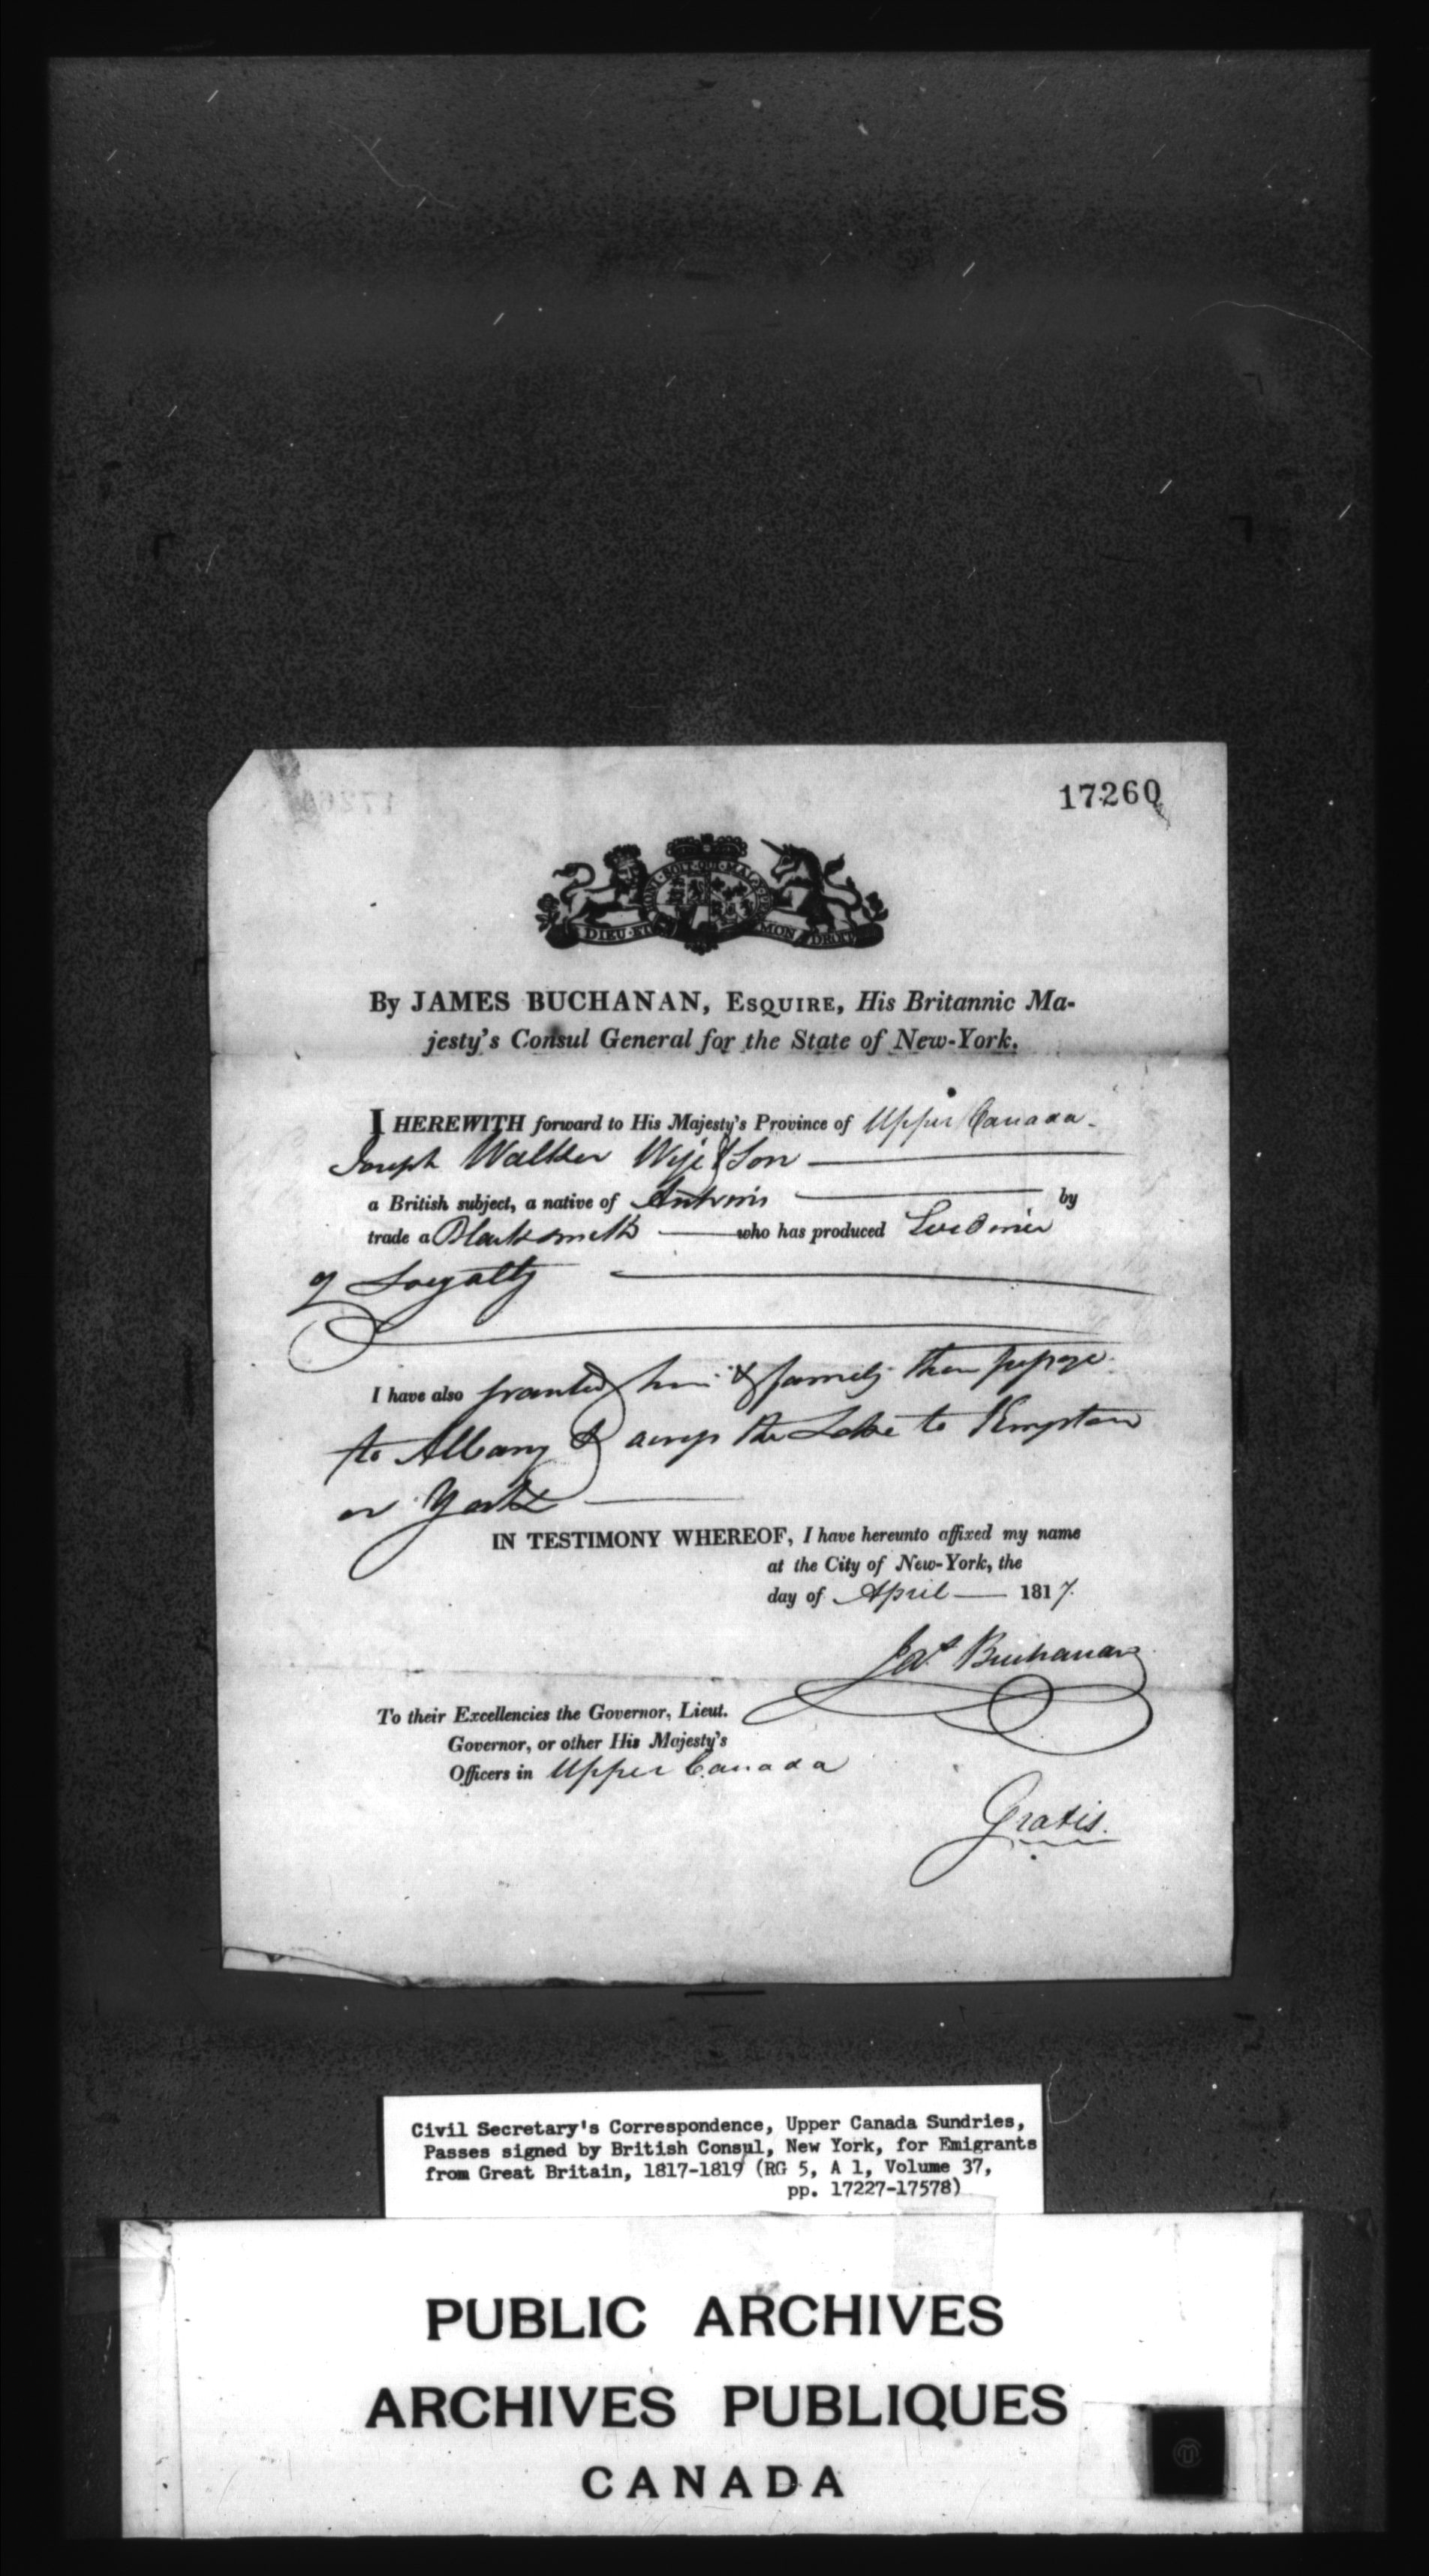 17260
HONI · SOIT · QUI · MAL · Y
DIEU · ET MON DROIT
By JAMES BUCHANAN, ESQUIRE, His Britannic Ma-
jesty's Consul General for the State of New-York.
I HEREWITH forward to His Majesty's Province of Upper Canada.
Joseph Walker Wife & Son
a British subject, a native of Antrim by
trade a Blacksmith who has produced Evidence
of Loyalty
I have also granted him & family their passage
to Albany & across the Lake to Kingston
or York
IN TESTIMONY WHEREOF, I have hereunto affixed my name
at the City of New-York, the
day of April 1817.
Jas. Buchanan
To their Excellencies the Governor, Lieut.
Governor, or other His Majesty's
Officers in Upper Canada
Gratis.
Civil Secretary's Correspondence, Upper Canada Sundries,
Passes signed by British Consul, New York, for Emigrants
from Great Britain, 1817-1819 (RG 5, A 1, Volume 37,
pp. 17227-17578)
PUBLIC ARCHIVES
ARCHIVES PUBLIQUES
CANADA